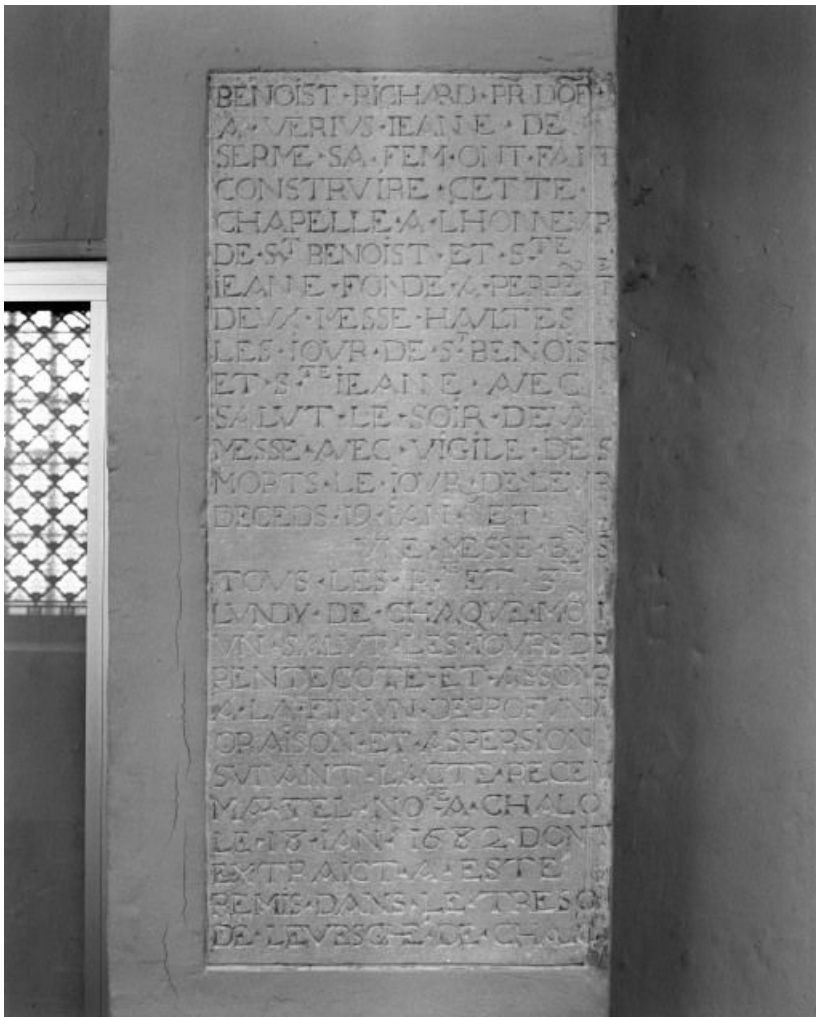 BENOIST·RICHARD·PR·DOR
A·VERIVS·IEANNE·DE
SERME·SA·FEM·ONT·FAIT
CONSTRVIRE·CETTE·
CHAPELLE·A·LHONNEVR
DE·ST BENOIST·ET·S·TE
IEANNE·FONDE·A·PERPET
DEVX·MESSE·HAVLTES
LES·IOVR·DE·ST·BENOIST
ET·S·TE IEANE·AVEC
SALVT·LE·SOIR·DEVX
MESSE·AVEC·VIGILE·DES
MORTS·LE·IOVR·DE·LEVR
DECEDS·19·IAN·ET·
MESSE·
TOVS·LES·ET·
LVNDY·DE·CHAQVE·MOI
VN·SALVT·LES·IOVRS DE
PENTECOTE·ET·ASSOMP
A·LA·FIN·VN·DEPROFVND
ORAISON·ET·ASPERSION
SVIVANT·LACTE·RECEV
MARTEL·NORE·A·CHALO
LE·18·IAN·1682·DONT
EXTRAICT·A·ESTE
REMIS·DANS·LE·TRESO
DE·LEVESCHE·DE·CHALO